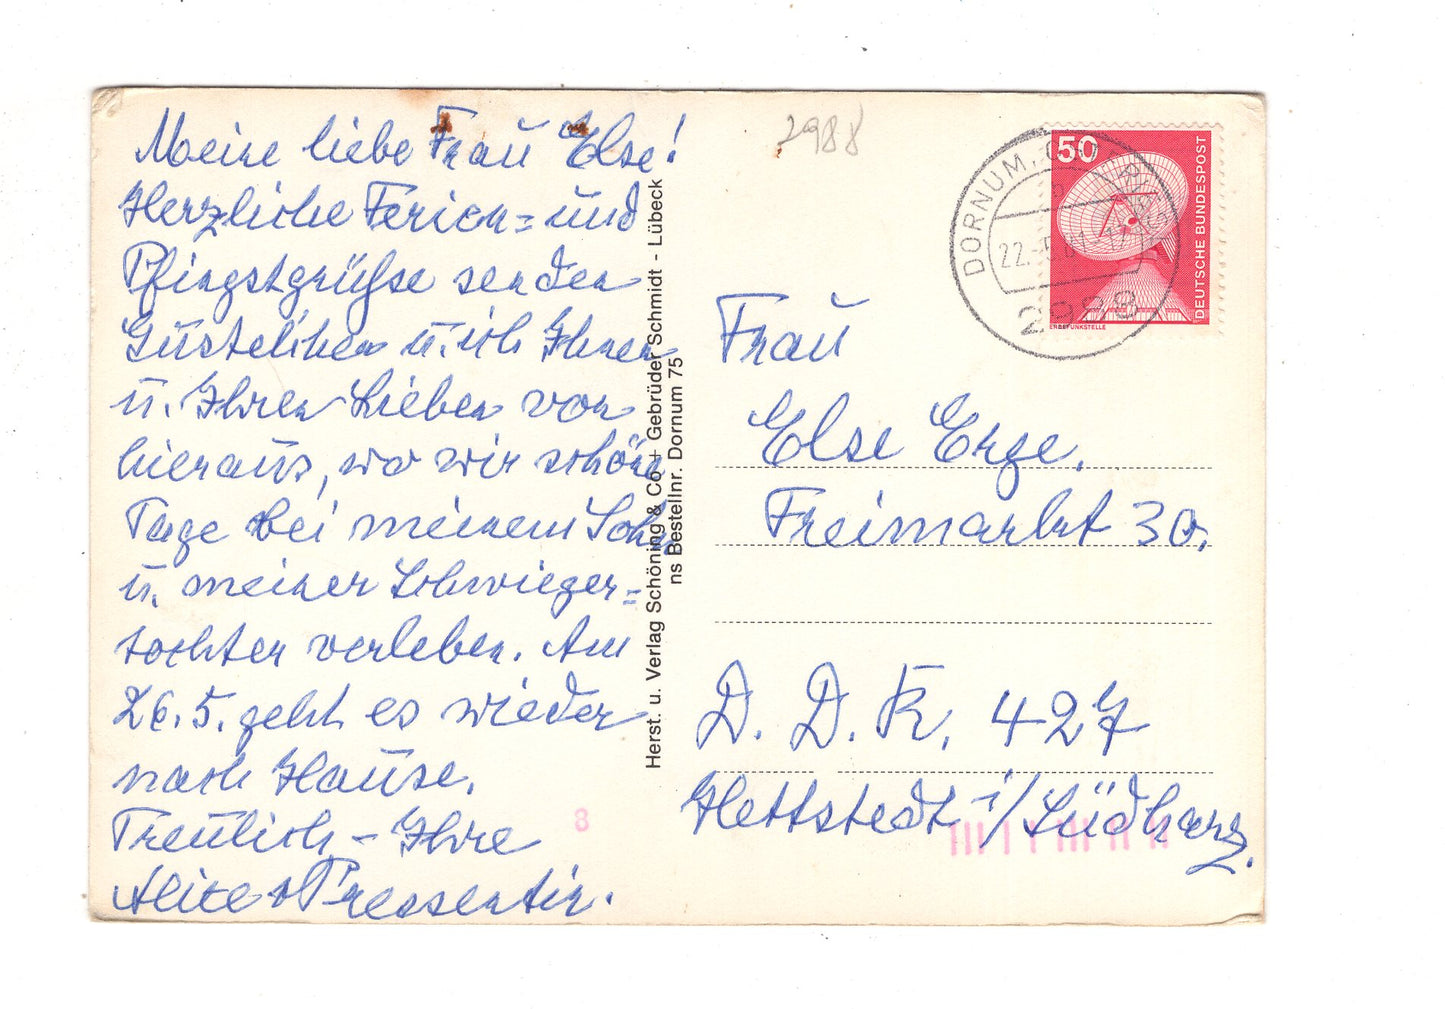 Meine liebe Frau Else!
Herzliche Ferien= und
Pfingstgrüße senden
Gustelchen u. ich Ihnen
u. Ihren Lieben von
hier aus, wo wir schöne
Tage bei meinem Sohn
u. meiner Schwieger=
tochter verleben. Am
26.5. geht es wieder
nach Hause.
Treulich – Ihre
Alice v Pressentin.
Herst. u. Verlag Schöning & Co + Gebrüder Schmidt - Lübeck
ns Bestellnr. Dornum 75
2988
50
DEUTSCHE BUNDESPOST
ERDEFUNKSTELLE
DORNUM,
22.-5.81-17
2988
Frau
Else Erge.
Freimarkt 30.
D. D. R. 427
Hettstedt i/Südharz.
8